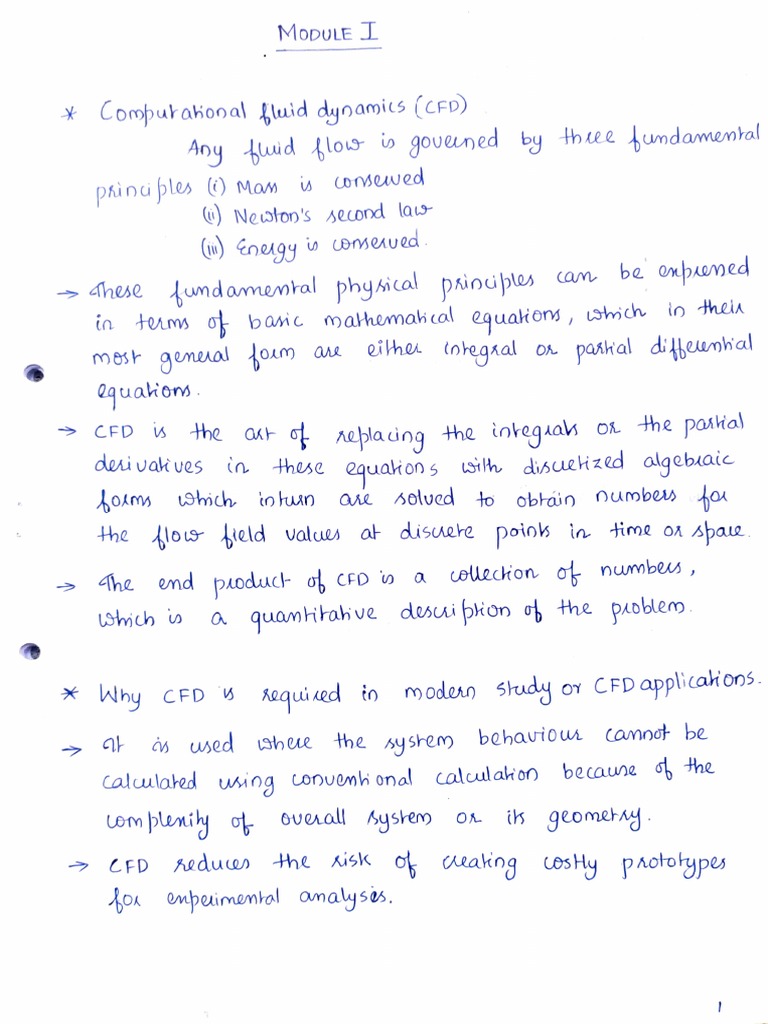 MODULE I
* Computational fluid dynamics (CFD)
Any fluid flow is governed by three fundamental
principles (i) Mass is conserved
(ii) Newton's second law
(iii) Energy is conserved.
→ These fundamental physical principles can be expressed
in terms of basic mathematical equations, which in their
most general form are either integral or partial differential
equations.
→ CFD is the art of replacing the integrals or the partial
derivatives in these equations with discretized algebraic
forms which inturn are solved to obtain numbers for
the flow field values at discrete points in time or space.
→ The end product of CFD is a collection of numbers,
which is a quantitative description of the problem.
* Why CFD is required in modern study or CFD applications.
→ It is used where the system behaviour cannot be
calculated using conventional calculation because of the
complexity of overall system or its geometry.
→ CFD reduces the risk of creating costly prototypes
for experimental analysis.
1